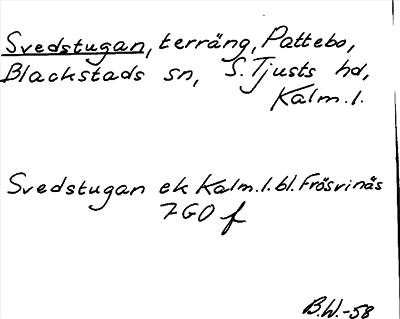 Svedstugan, terräng, Pattebo,
Blackstads sn, S. Tjusts hd,
Kalm. l.
Svedstugan ek Kalm. l. bl. Frösvinäs
7GO f
B.W.-58